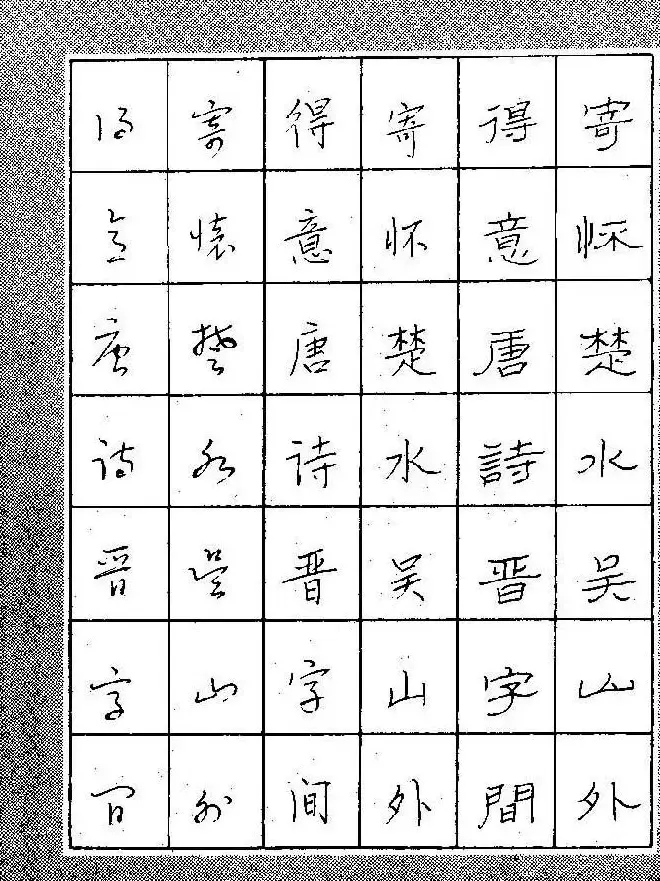 寄怀楚水吴山外
得意唐詩晋字間
寄怀楚水吴山外
得意唐诗晋字间
寄懷楚水吴山外
得意唐诗晋字间